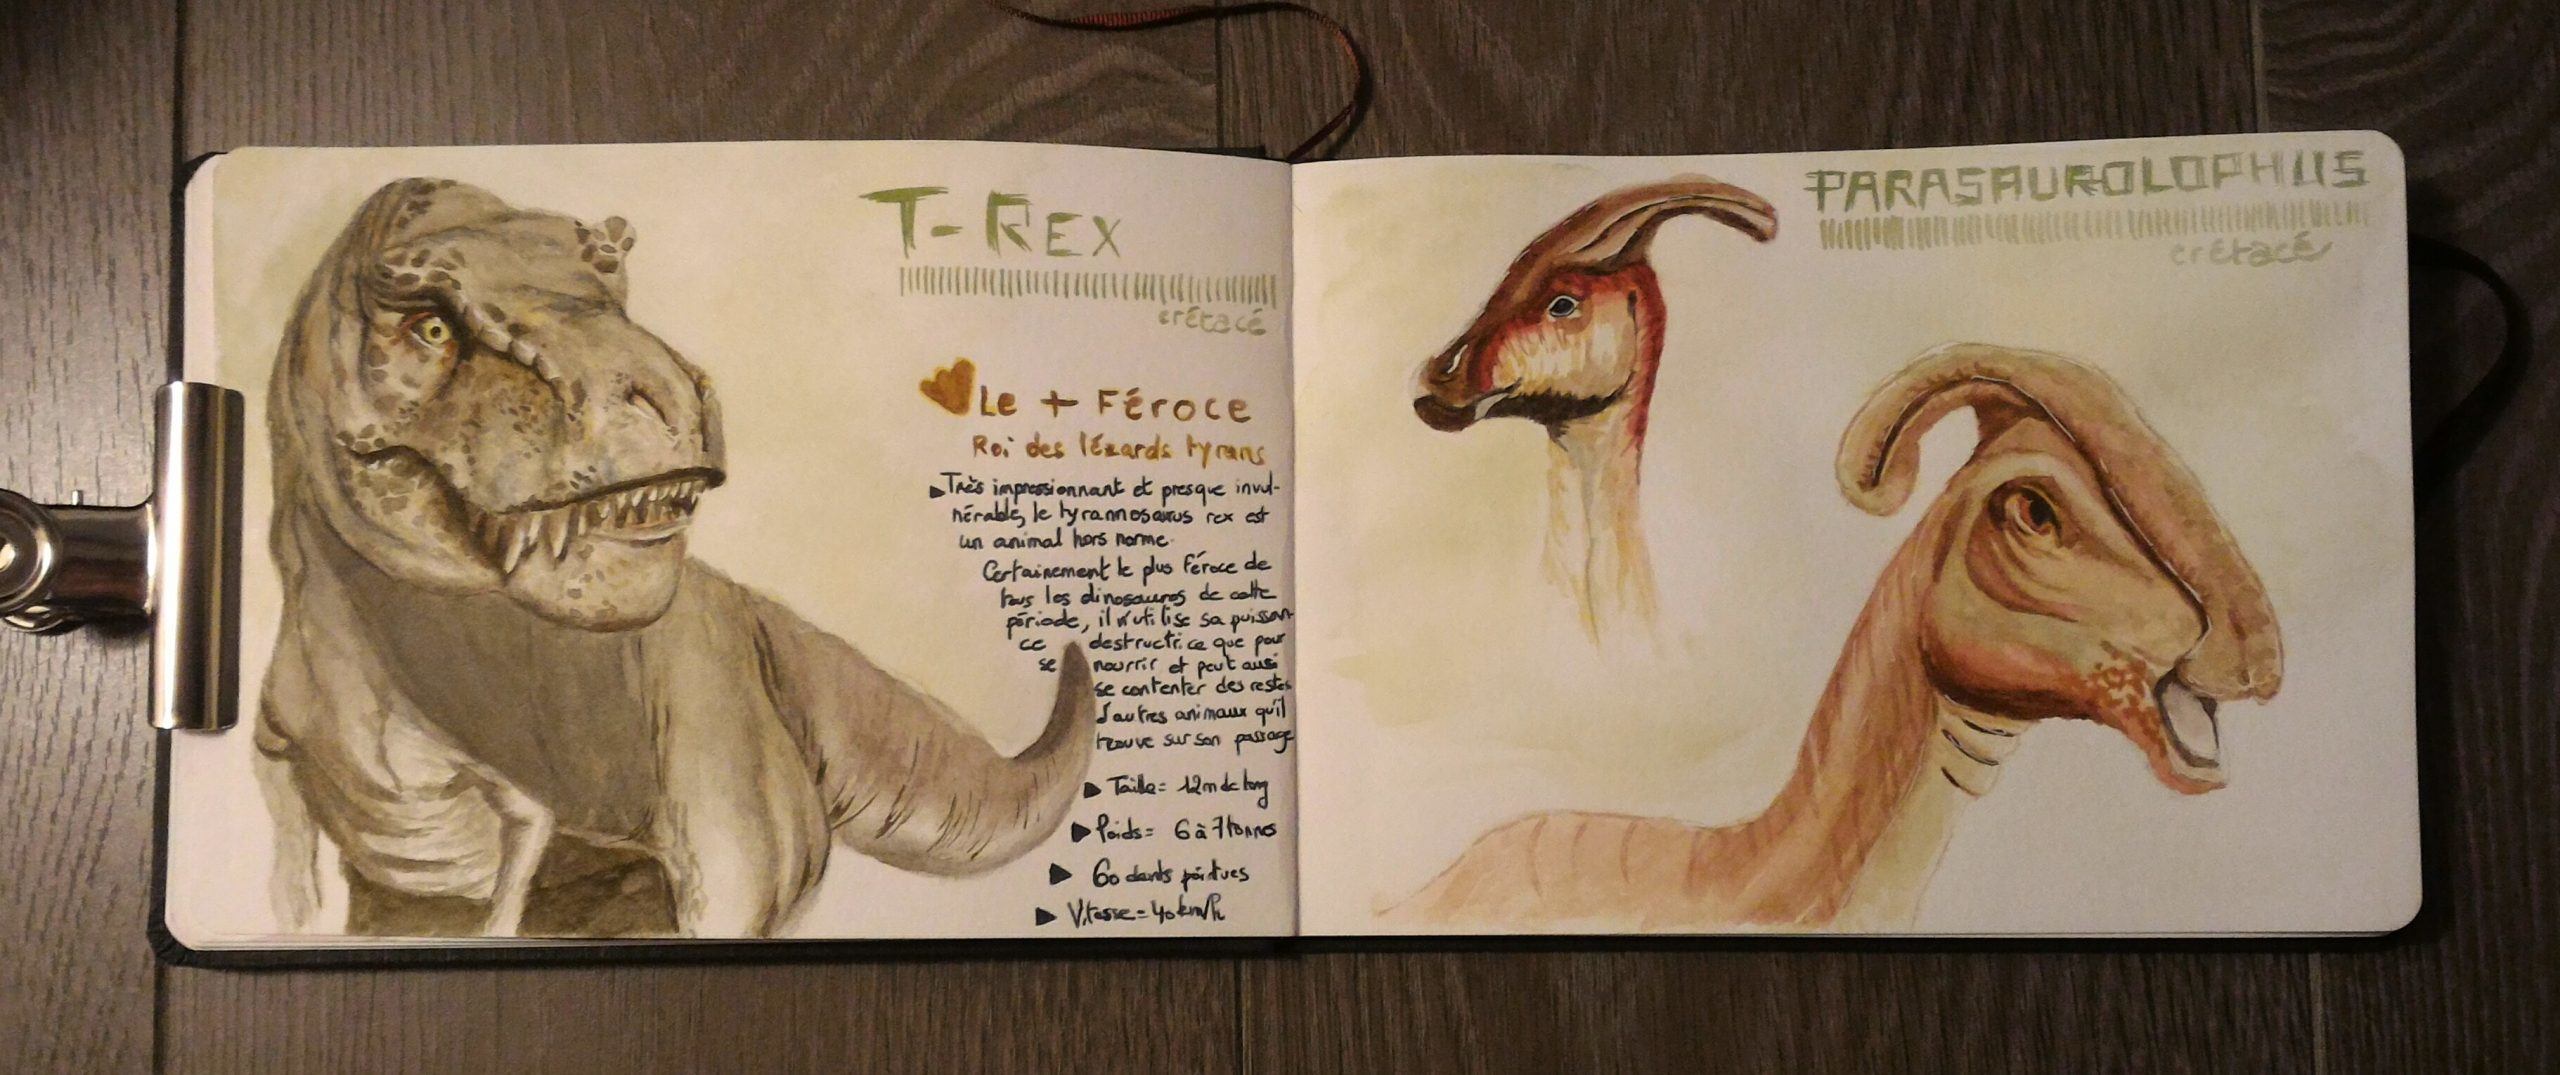 T-REX
crétacé
Le + Féroce
Roi des lézards tyrans
Très impressionnant et presque invul-
nérable, le tyrannosaurus rex est
un animal hors norme.
Certainement le plus féroce de
tous les dinosaures de cette
période, il n'utilise sa puissan-
ce destructrice que pour
se nourrir et peut aussi
se contenter des restes
d'autres animaux qu'il
trouve sur son passage
Taille = 12m de long
Poids = 6 à 7 tonnes
60 dents pointues
Vitesse = 40 km/h
PARASAUROLOPHUS
crétacé